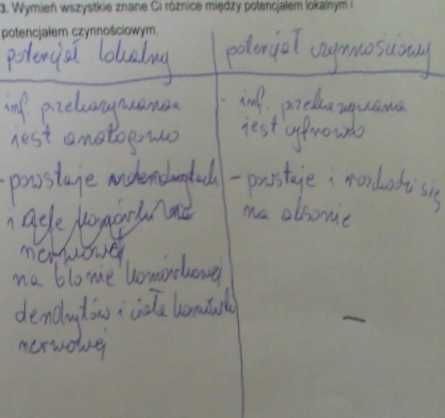 3. Wymień wszystkie znane Ci różnice między potencjałem lokalnym i
potencjałem czynnościowym.
potencjał lokalny
potencjał czynnościowy
inf. przekazywana
jest analogowo
- powstaje
i
nerwowej
na błonie komórkowej
dendrytów i ciała komórki
nerwowej
- inf. przekazywana
jest cyfrowo
- powstaje i rozchodzi się
na aksonie
—